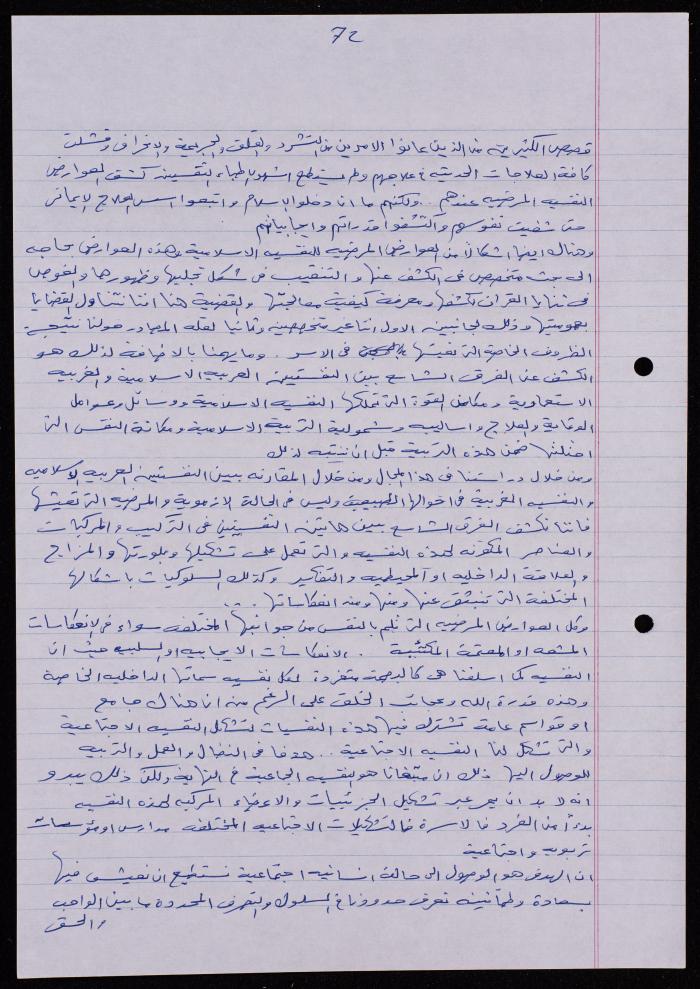 72
قصص الكثيرين من الذين عانوا الامرين من التشرد والقلق والجريمة والانحراف وفشلت
كافة العلاجات الحديثة في علاجهم ولم يستطع اشهر الاطباء النفسيين كشف العوارض
النفسيه المرضيه عندهم .. ولكنهم ما ان دخلوا الاسلام واتبعوا اسس العلاج الايماني
حتى شفيت نفوسهم واكتشفوا قدراتهم وايجابياتهم
وهناك ايضا اشكالا من العوارض المرضيه للنفسيه الاسلامية وهذه العوارض بحاجه
الى بحث متخصص في الكشف عنها والتنقيب في شكل تجليها وظهورها والغوص
في ثنايا القران لكشفها ومعرفة كيفية معالجتها والقضية هنا اننا نتناول القضايا
بعموميتها وذلك لجانبين الاول اننا غير متخصصين وثانيا لقله المصادر حولنا نتيجة
الظروف الخاصة التي نعيشها في الاسر . وما يهمنا بالاضافة لذلك هو
الكشف عن الفرق الشاسع بين النفستيين العربيه الاسلامية والغربيه
الاستعماريه ومكامن القوة التي تمتلكها النفسيه الاسلامية ووسائل وعوامل
الوقاية والعلاج واساليبه وشمولية التربية الاسلامية ومكانة النفس التي
احتلتها ضمن هذه التربية قبل ان ننتبه لذلك
ومن خلال دراستنا في هذا المجال ومن خلال المقارنه بين النفستين العربيه الاسلاميه
والنفسيه الغربية في احوالها الطبيعية وليس في الحالة الازموية والمرضيه التي تعيشها
فاننا نكشف الفرق الشاسع بين هاتين النفسيتين في التركيب والمركبات
والعناصر المكونه لهذه النفسيه والتي تعمل على تشكيلها وبلورتها والمزاج
والعلاقة الداخليه او المحيطيه والتفكير وكذلك السلوكيات باشكالها
المختلفة التي تنبثق عنها ومنها ومنه انعكاساتها ...
وكل العوارض المرضيه التي تلم بالنفس من جوانبها المختلفه سواء في الانعكاسات
المشعه او المعتمة المكتئبة . الانعكاسات الايجابيه او السلبيه حيث ان
النفسيه كما اسلفنا هي كالبصمة متفردة لكل نفسيه سماتها الداخليه الخاصة
وهذه قدرة الله وعجائب الخلق على الرغم من ان هناك جامع
او قواسم عامة تشترك فيها هذه النفسيات لتشكل النفسيه الاجتماعية
والتي تشكل لنا النفسيه الاجتماعية .. هدفا في النضال والعمل والتربيه
للوصول اليها ذلك ان مبتغانا هو النفسيه الجماعية في النهاية ولكن ذلك يبدو
انه لا بد ان يمر عبر تشكيل الجزئيات والاعضاء المركبه لهذه النفسيه
بدءاً من الفرد فالاسرة فالتشكيلات الاجتماعيه المختلفه مدارس او مؤسسات
تربويه واجتماعية
ان الهدف هو الوصول الى حالة انسانيه اجتماعية نستطيع ان نعيش فيها
بسعادة وطمأنينه نعرف حدودنا في السلوك والتصرف المحددة ما بين الواجب
والحق